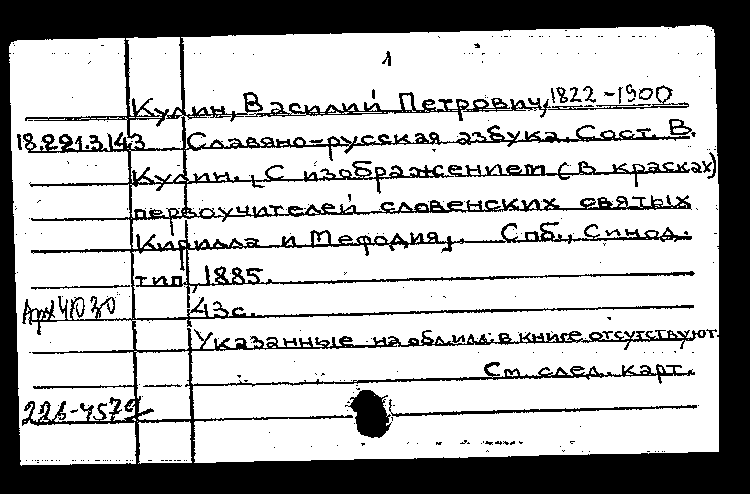 1
Кулин, Василий Петрович, 1822-1900
18.221.3.143 Славяно-русская азбука. Сост. В.
Кулин. [С изображением (в красках)
первоучителей словенских святых
Кирилла и Мефодия]. Спб., Синод.
тип., 1885.
43с.
Указанные на обл. илл. в книге отсутствуют.
См. след. карт.